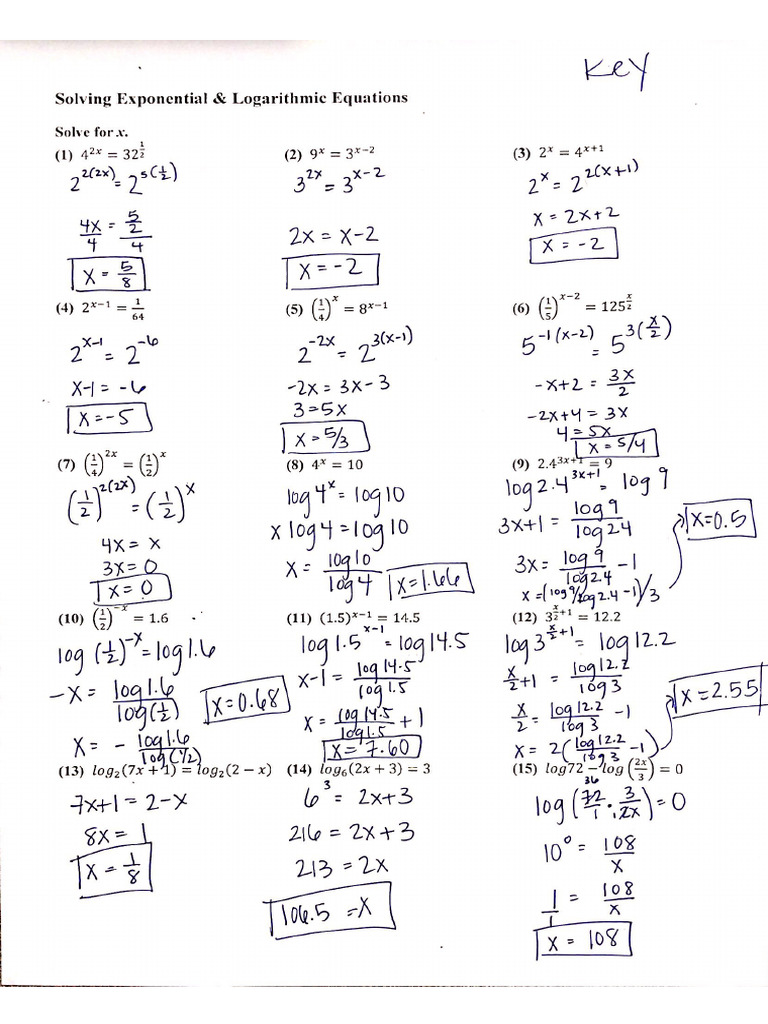 Key
Solving Exponential & Logarithmic Equations
Solve for x.
(1) 4^{2x} = 32^{\frac{1}{2}}
2^{2(2x)} = 2^{5(\frac{1}{2})}
\frac{4x}{4} = \frac{\frac{5}{2}}{4}
x = \frac{5}{8}
(2) 9^x = 3^{x-2}
3^{2x} = 3^{x-2}
2x = x-2
x = -2
(3) 2^x = 4^{x+1}
2^x = 2^{2(x+1)}
x = 2x+2
x = -2
(4) 2^{x-1} = \frac{1}{64}
2^{x-1} = 2^{-6}
x-1 = -6
x = -5
(5) (\frac{1}{4})^x = 8^{x-1}
2^{-2x} = 2^{3(x-1)}
-2x = 3x-3
3 = 5x
x = 5/3
(6) (\frac{1}{5})^{x-2} = 125^{\frac{x}{2}}
5^{-1(x-2)} = 5^{3(\frac{x}{2})}
-x+2 = \frac{3x}{2}
-2x+4 = 3x
4 = 5x
x = 5/4
(7) (\frac{1}{4})^{2x} = (\frac{1}{2})^x
(\frac{1}{2})^{2(2x)} = (\frac{1}{2})^x
4x = x
3x = 0
x = 0
(8) 4^x = 10
log 4^x = log 10
x log 4 = log 10
x = \frac{log 10}{log 4}
x = 1.66
(9) 2.4^{3x+1} = 9
log 2.4^{3x+1} = log 9
3x+1 = \frac{log 9}{log 2.4}
3x = \frac{log 9}{log 2.4} - 1
x = (log 9/log 2.4 - 1)/3
x = 0.5
(10) (\frac{1}{2})^{-x} = 1.6
log (\frac{1}{2})^{-x} = log 1.6
-x = \frac{log 1.6}{log(\frac{1}{2})}
x = - \frac{log 1.6}{log(1/2)}
x = 0.68
(11) (1.5)^{x-1} = 14.5
log 1.5^{x-1} = log 14.5
x-1 = \frac{log 14.5}{log 1.5}
x = \frac{log 14.5}{log 1.5} + 1
x = 7.60
(12) 3^{\frac{x}{2}+1} = 12.2
log 3^{\frac{x}{2}+1} = log 12.2
\frac{x}{2}+1 = \frac{log 12.2}{log 3}
\frac{x}{2} = \frac{log 12.2}{log 3} - 1
x = 2(\frac{log 12.2}{log 3} - 1)
x = 2.55
(13) log_2(7x + 1) = log_2(2 - x)
7x+1 = 2-x
8x = 1
x = \frac{1}{8}
(14) log_6(2x + 3) = 3
6^3 = 2x+3
216 = 2x+3
213 = 2x
106.5 = x
(15) log72 - log(\frac{2x}{3}) = 0
36
log(\frac{72}{1} · \frac{3}{2x}) = 0
10^0 = \frac{108}{x}
\frac{1}{1} = \frac{108}{x}
x = 108